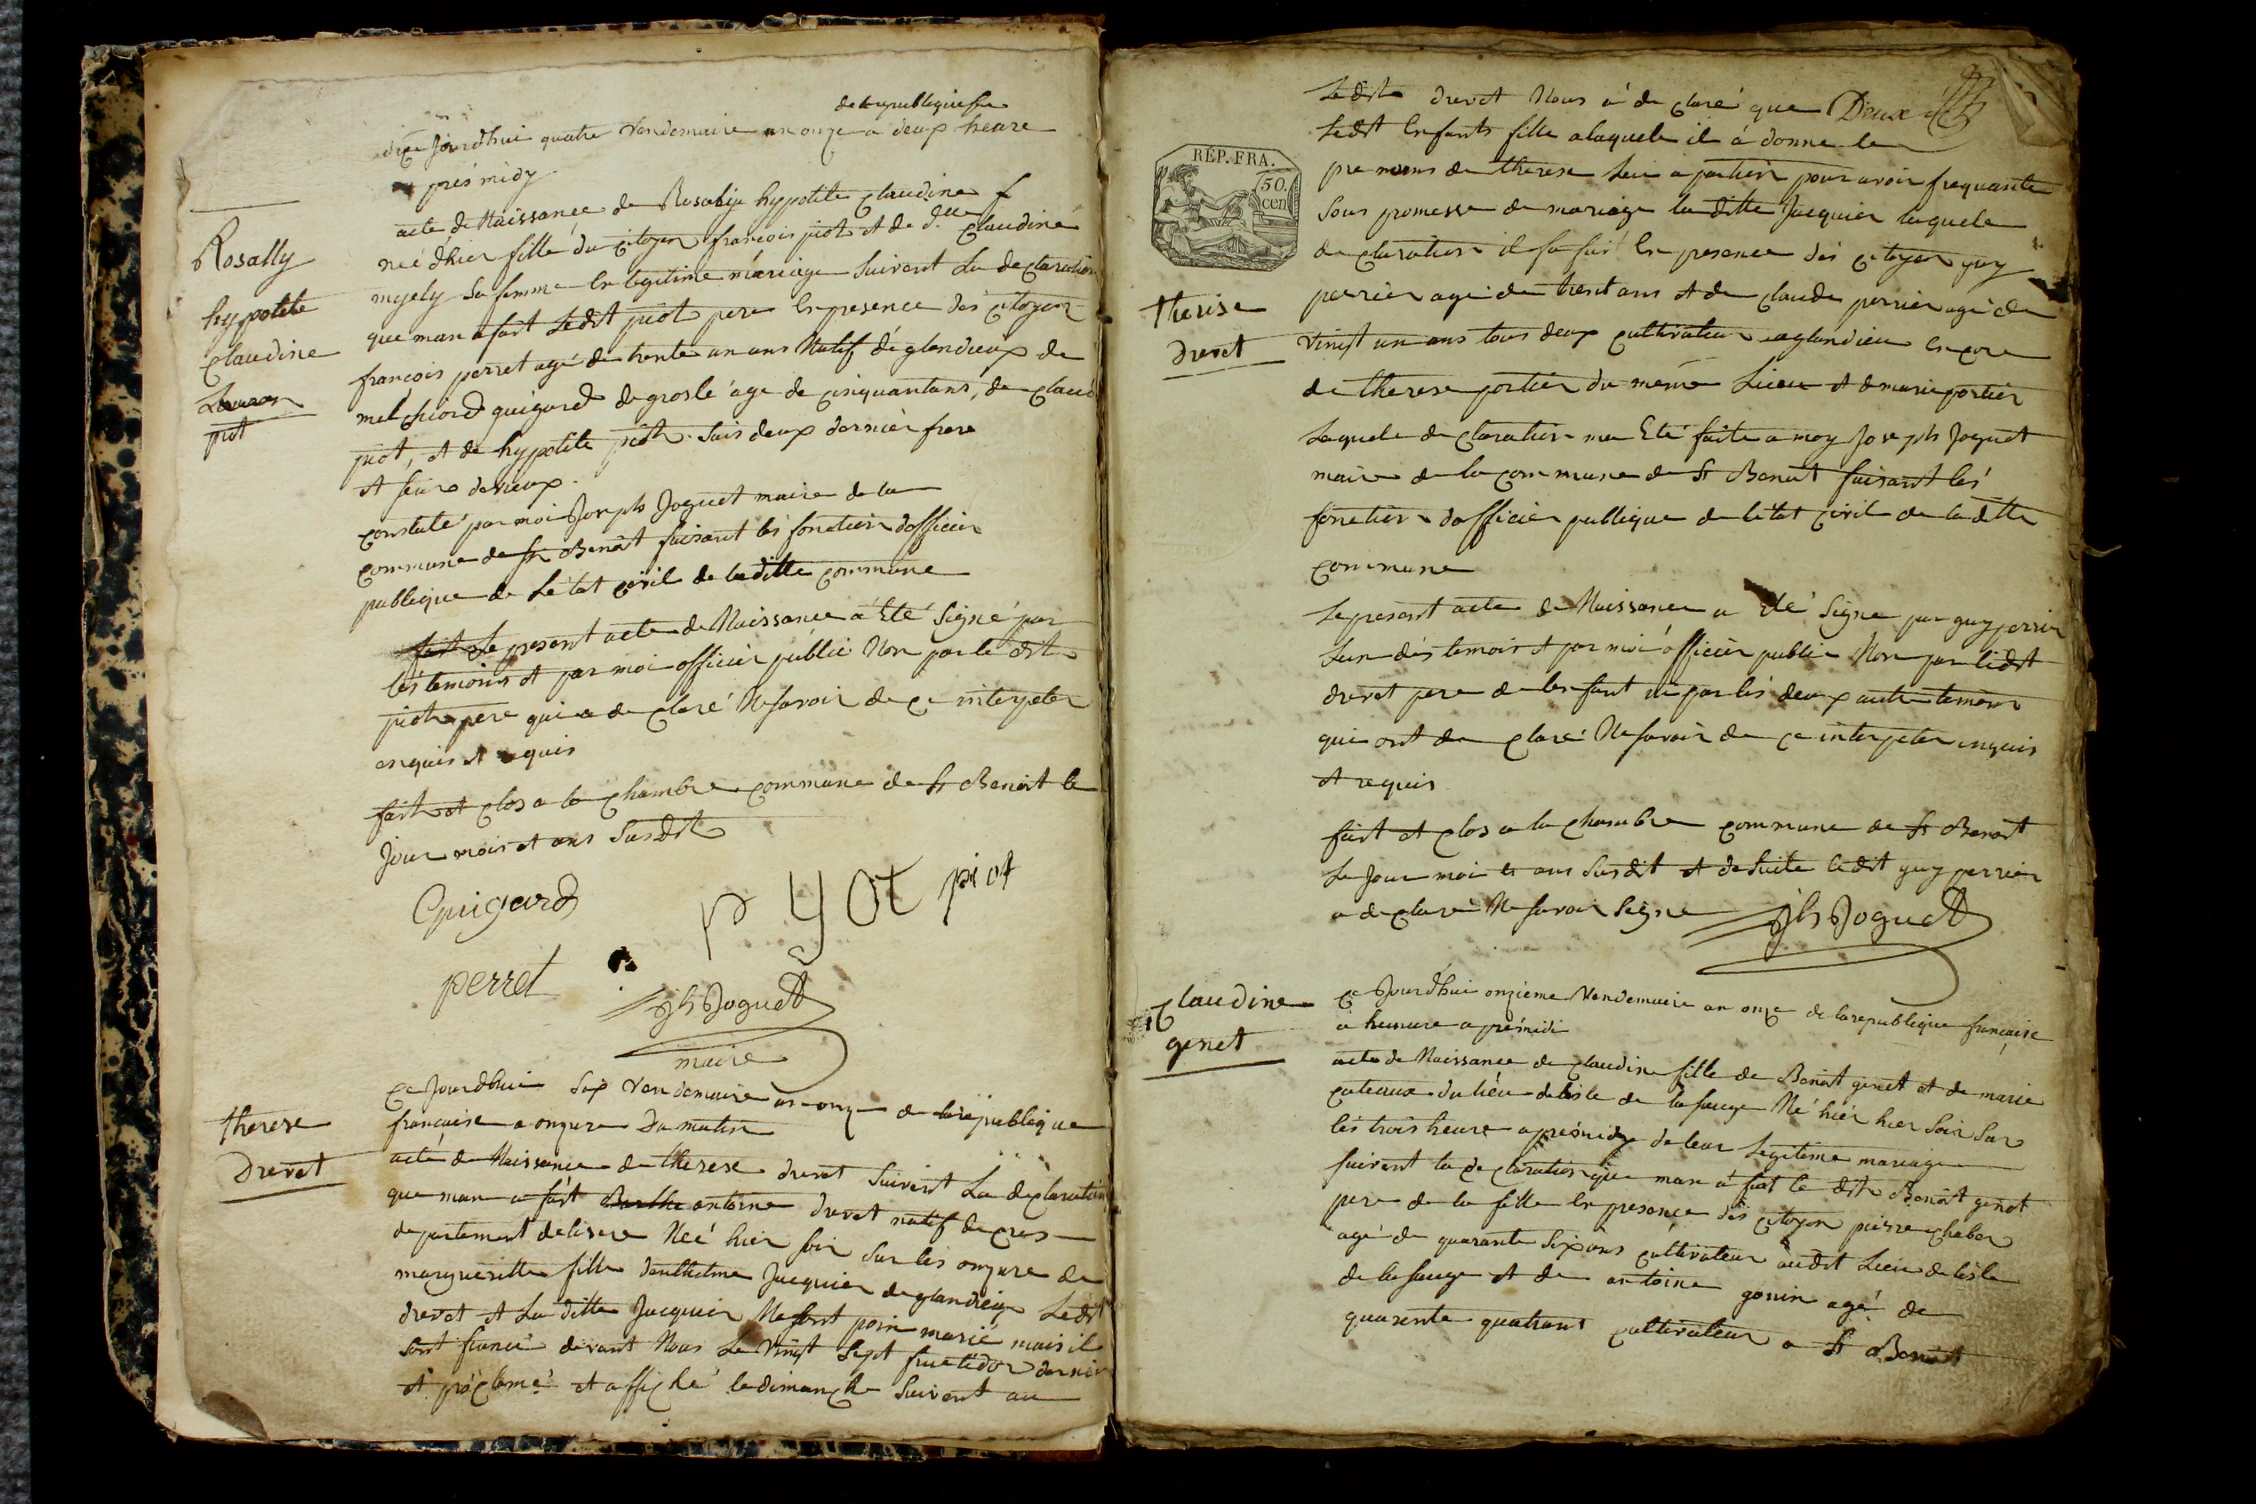 de la republique fra
Ce Jourdhui quatre Vendemaire an onze a deux heure
a prés midy
Rosally
hypolite
claudine
piot
acte de Naissance de Rosalije hypolite claudine
neé dhier fille du citoyen françois piot et de d.lle claudine
myely sa femme En legitime mariage Suivant La declaration
que man a fait Ledit piot pere En presence des citoyen
françois perret agé de trente un ans Natif dé glandieux de
melchiord guigard de groslé age de cinquantans, de claude
piot, et de hypolite piot
constaté par moi Joseph Joguet maire de la
commune de St Benoit faisant lés fonction dofficier
publique de Lé tat civil de laditte commune
fait Le present acte de Naissance a Eté Signé par
lés temoins et par moi officier public Non par le dit
piot pere qui a de claré Ne savoir de ce interpeler
enquis et requis
fait et clos a la chambre commune de St Benoit le
Jour mois et ans Susdit
Guigard
p yot piot
perret
Jh Joguet
maire
therese
Drevet
Ce Jourdhui Sep Vendemaire an onze de la republique
francaise a onzure Du matin
acte de Naissance de therese drevet Suivant La declaration
que man a fait antoine drevet natif de cros
departement de lisere Neé hier soir Sur lés onzure de
marguerite fille danthelme Jacquier de glandieux Ledit
drevet et La ditte Jacquier Ne sont poin marié mais il
sont fiancé devant Nous Le Vingt Sept fructidor dernier
et proclamé et affiché le dimanche Suivant au
Deux
RÉP. FRA.
50.
cen
therese
drevet
Ledit drevet Nous á de claré que
Ledit Enfants fille a laquele il á donne le
pre noms de therese Lui apartien pour avoir frequanté
Sous promesse de mariage la ditte Jacquier laquele
de claration il fa fait En presence dés citoyen guy
perrier agé de trent ans et de claude perrier agé de
vingt un ans tous deux cultivateur a glandieu Encore
de therese portier du meme Lieu et de marie portier
Laquele de claration ma Eté faite a moy Joseph Joguet
maire de la commune de St Benoit faisant lés
fonction dofficier publique de létat civil de la ditte
commune
Le present acte de Naissance a Eté Signe par guy perrier
Lun dés temoin et par moi officier public Non par ledit
drevet pere de len fant ni par lés deux autre temoin
qui ont de claré Ne savoir de ce interpeler enquis
et requis
fait et clos a la chambre commune de St Benoit
Le Jour moi et ans Susdit et de Suite ledit guy perrier
a de claré Ne savoir Signe
Jh Joguet
Claudine
genet
Ce Jourdhui onzieme Vendemaire an onze de la republique francaise
a heunure a prémidi
acte de Naissance de claudine fille de Benoit genet et de marie
du lieu de lisle de la sauge Né hiér hier Soir Sur
lés trois heure a prémidy de leur Legitime mariage
suivant la de claration que man á fait le dit Benoit genet
pere de la fille En presence dés citoyen pierre chaber
agé de quarante Six ans cultivateur audit Lieu de lisle
de la sauge et de antoine gonin agé de
quarante quatrant cultivateur a St Benoit